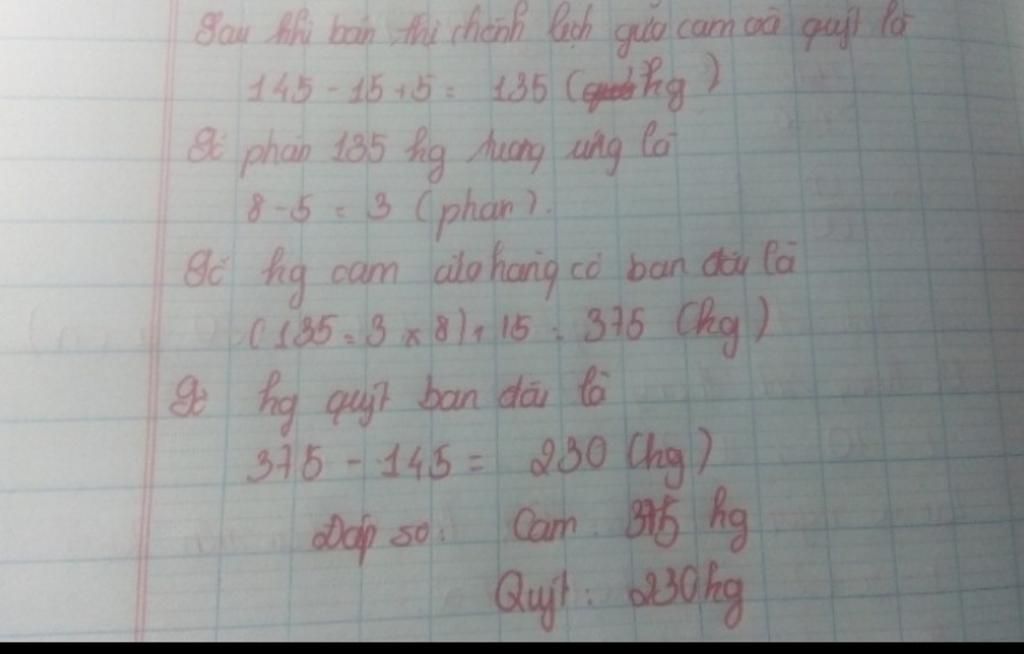 Sau khi bán thì chênh lệch giữa cam và quýt là
145 - 15 + 5 = 135 (kg)
Số phần 135 kg tương ứng là
8 - 5 = 3 (phần).
Số kg cam cửa hàng có ban đầu là
(135 : 3 x 8) + 15 = 375 (kg)
Số kg quýt ban đầu là
375 - 145 = 230 (kg)
Đáp số: Cam: 375 kg
Quýt: 230 kg